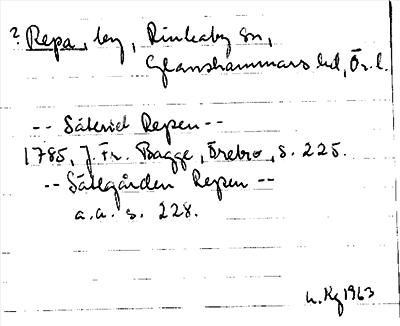 ? Repa, by, Rinkaby sn,
Glanshammars hd, Ör. l.
-- Säterid Repen --
1785, J. Fr. Bagge, Örebro, s. 225.
-- Sätegården Repen --
a.a. s. 228.
1963